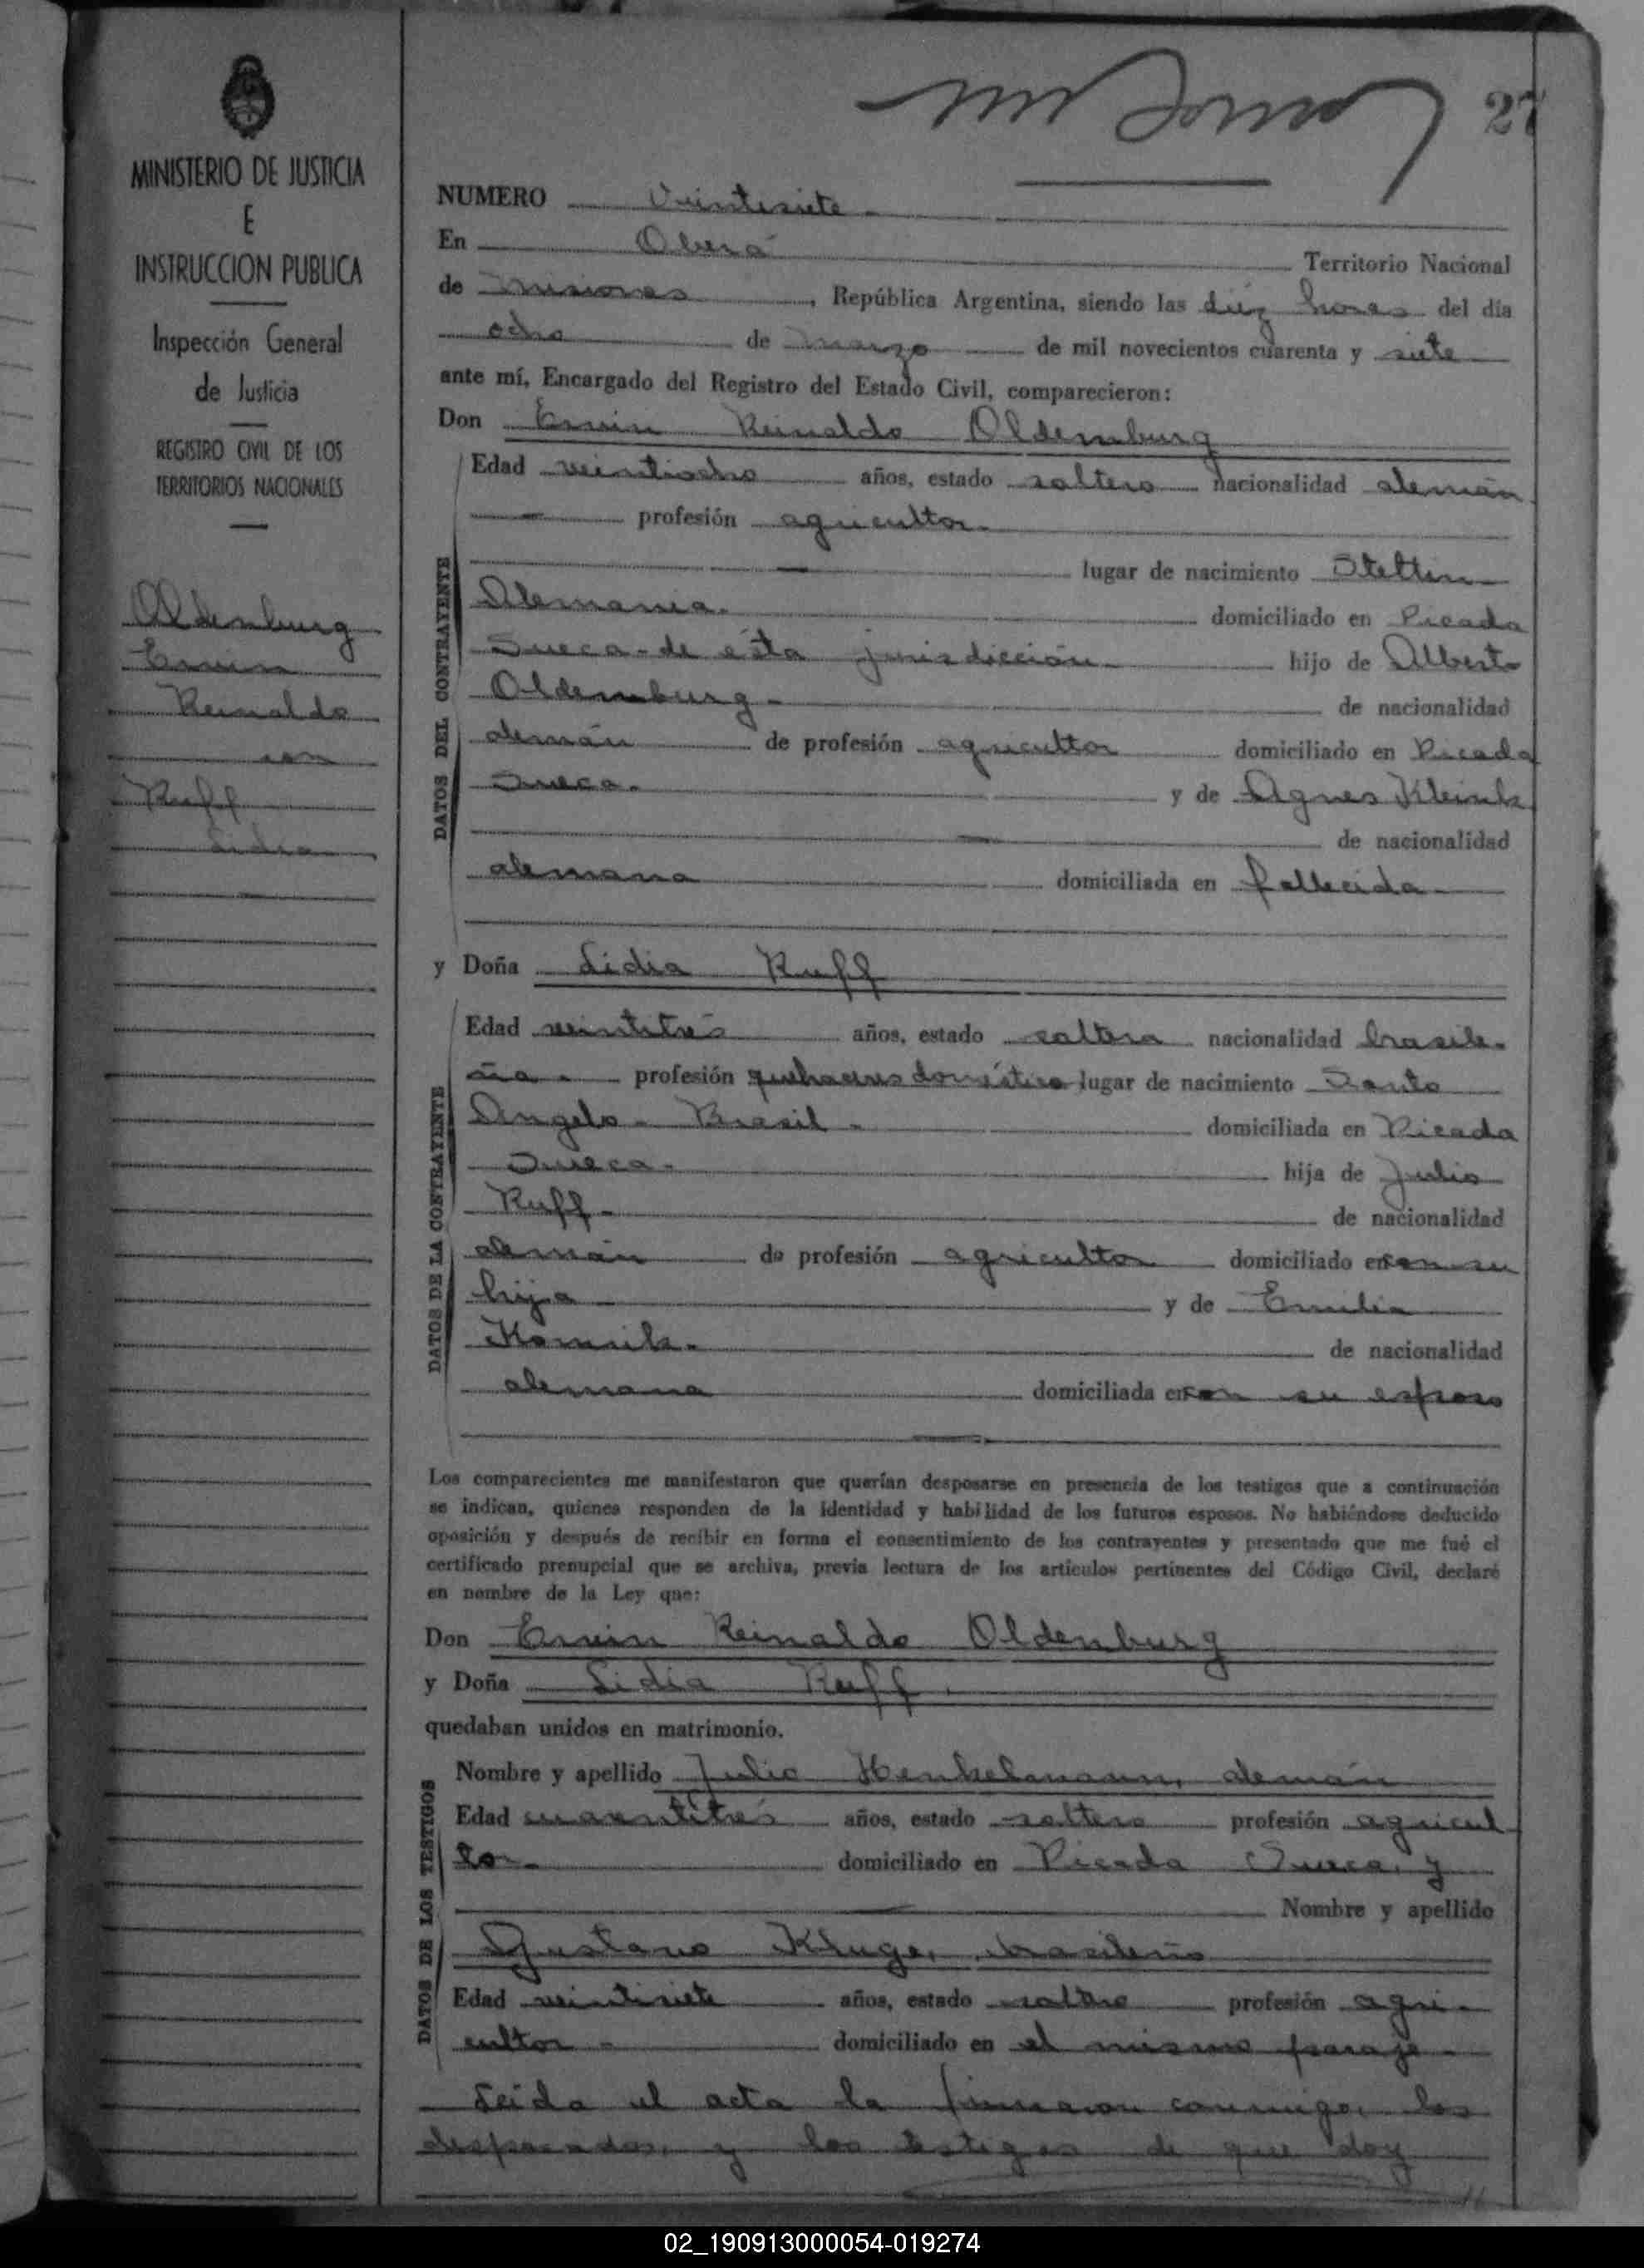 27
MINISTERIO DE JUSTICIA
E
INSTRUCCION PUBLICA
Inspección General
de Justicia
REGISTRO CIVIL DE LOS
TERRITORIOS NACIONALES
Oldenburg
Erwin
Reinaldo
con
Ruff
Lidia
NUMERO Veintisiete
En Oberá Territorio Nacional
de Misiones, República Argentina, siendo las diéz horas del día
ocho de marzo de mil novecientos cuarenta y siete
ante mí, Encargado del Registro del Estado Civil, comparecieron:
Don Erwin Reinaldo Oldemburg
DATOS DEL CONTRAYENTE
Edad veintiocho años, estado soltero nacionalidad alemán
profesión agricultor
lugar de nacimiento Stettin
Alemania. domiciliado en Picada
Sueca - de ésta jurisdicción hijo de Alberto
Oldemburg - de nacionalidad
alemán de profesión agricultor domiciliado en Picada
Sueca. y de Agnes
de nacionalidad
alemana domiciliada en fallecida
y Doña Lidia Ruff
DATOS DE LA CONTRAYENTE
Edad veintitrés años, estado soltera nacionalidad brasile-
ña. profesión quehaceres domésticos lugar de nacimiento Santo
Angelo - Brasil - domiciliada en Picada
Sueca. hija de Julio
Ruff - de nacionalidad
alemán de profesión agricultor domiciliado en con su
hija y de Emilia
de nacionalidad
alemana domiciliada en con su esposo
Los comparecientes me manifestaron que querían desposarse en presencia de los testigos que a continuación
se indican, quienes responden de la identidad y habilidad de los futuros esposos. No habiéndose deducido
oposición y después de recibir en forma el consentimiento de los contrayentes y presentado que me fué el
certificado prenupcial que se archiva, previa lectura de los artículos pertinentes del Código Civil, declaré
en nombre de la Ley que:
Don Erwin Reinaldo Oldenburg
y Doña Lidia Ruff.
quedaban unidos en matrimonio.
DATOS DE LOS TESTIGOS
Nombre y apellido Julio Henkelmann, alemán
Edad cuarentitrés años, estado soltero profesión agricul
tor - domiciliado en Picada Sueca, y
Nombre y apellido
Gustavo Kluge, brasileño
Edad veintisiete años, estado soltero profesión agri-
cultor - domiciliado en el mismo paraje -
Leida el acta la firmaron conmigo, los
desposados, y los testigos de que doy
02_190913000054-019274